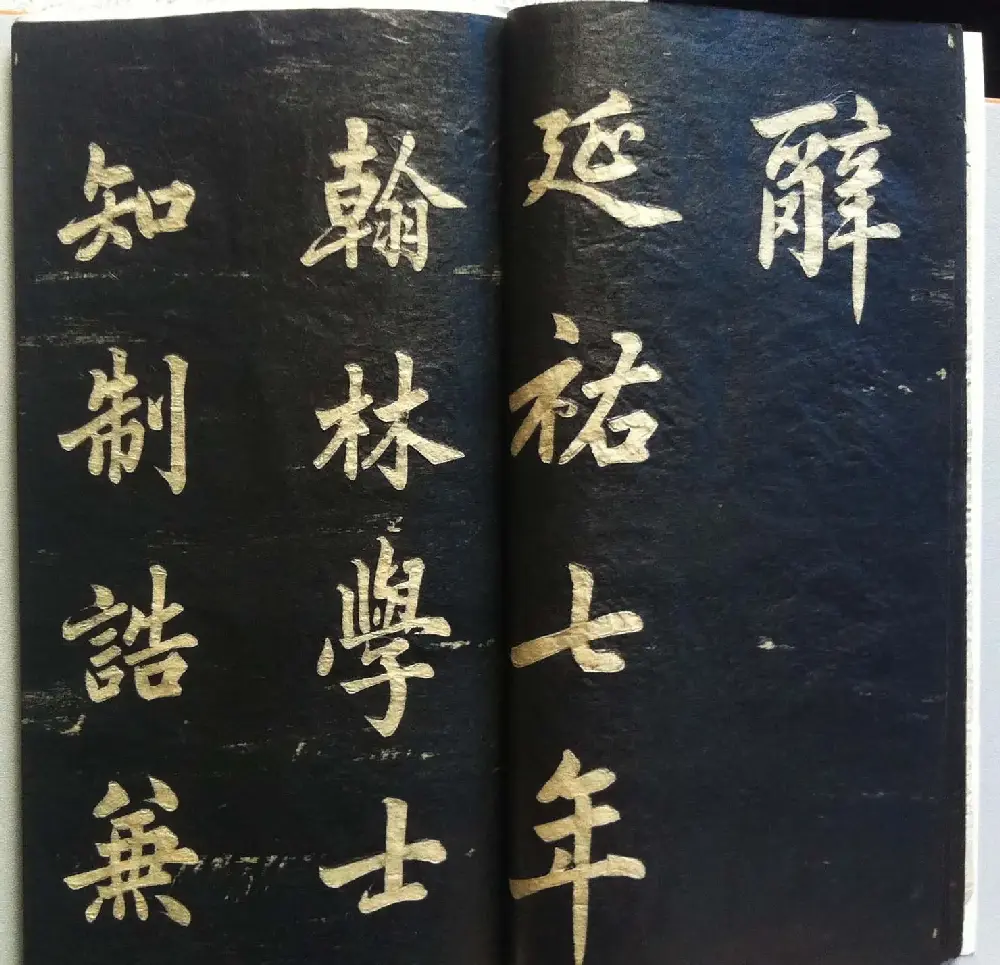 辭
延祐七年
翰林學士
知制誥兼